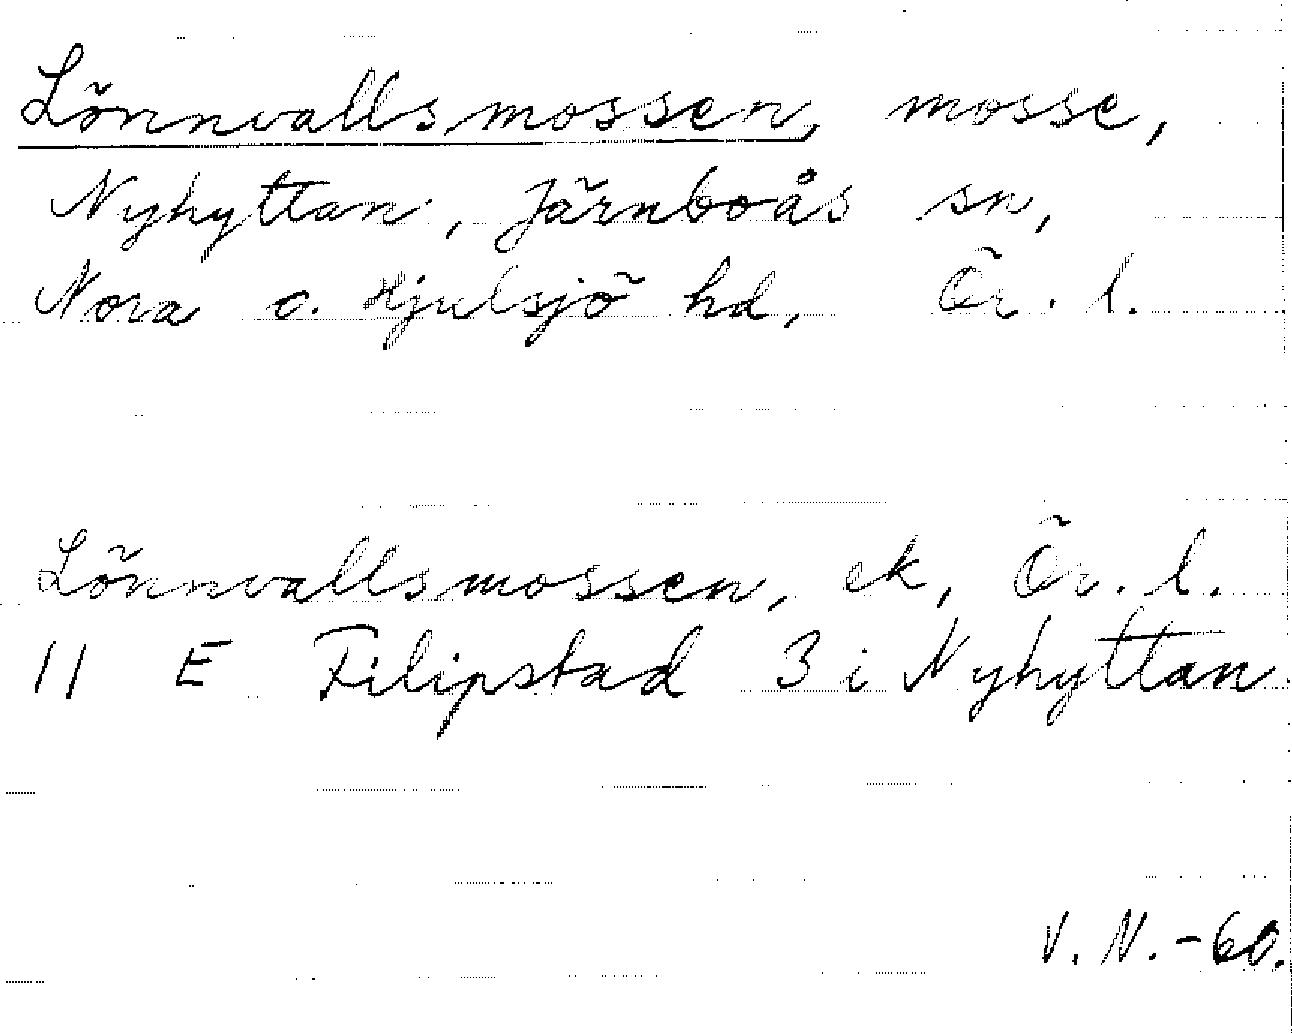 Lönnvallsmossen, mosse,
Nyhyttan, Järnboås sn,
Nora o. Hjulsjö hd, Ör. l.
Lönnvallsmossen, ek, Ör. l.
11 E Filipstad 3 i Nyhyttan
V. N. -60.